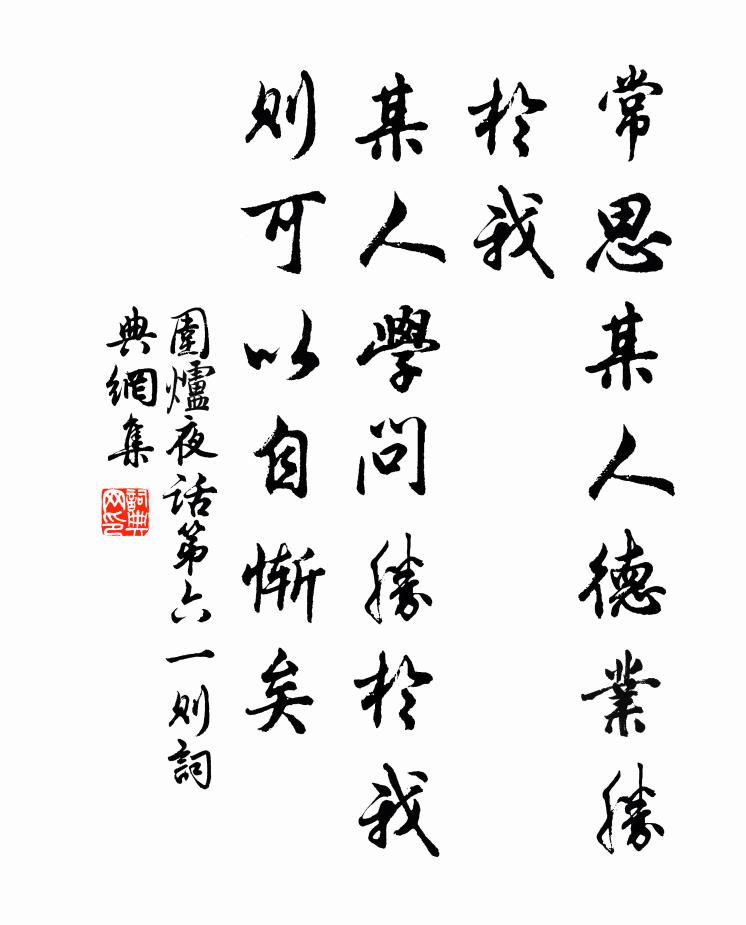 常思某人德業勝
於我
某人學問勝於我
則可以自慚矣
圍爐夜话第六一則詞
典網集
詞典网印